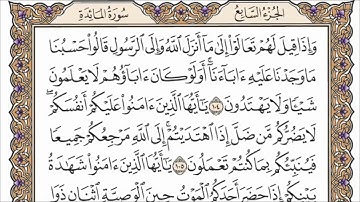 الجزء السابع سورة المائدة
وَإِذَا قِيلَ لَهُمْ تَعَالَوْا۟ إِلَىٰ مَآ أَنزَلَ ٱللَّهُ وَإِلَى ٱلرَّسُولِ قَالُوا۟ حَسْبُنَا
مَا وَجَدْنَا عَلَيْهِ ءَابَآءَنَآ ۚ أَوَلَوْ كَانَ ءَابَآؤُهُمْ لَا يَعْلَمُونَ
شَيْـًٔا وَلَا يَهْتَدُونَ ١٠٤ يَـٰٓأَيُّهَا ٱلَّذِينَ ءَامَنُوا۟ عَلَيْكُمْ أَنفُسَكُمْ ۖ
لَا يَضُرُّكُم مَّن ضَلَّ إِذَا ٱهْتَدَيْتُمْ ۚ إِلَى ٱللَّهِ مَرْجِعُكُمْ جَمِيعًا
فَيُنَبِّئُكُم بِمَا كُنتُمْ تَعْمَلُونَ ١٠٥ يَـٰٓأَيُّهَا ٱلَّذِينَ ءَامَنُوا۟ شَهَـٰدَةُ
بَيْنِكُمْ إِذَا حَضَرَ أَحَدَكُمُ ٱلْمَوْتُ حِينَ ٱلْوَصِيَّةِ ٱثْنَانِ ذَوَا